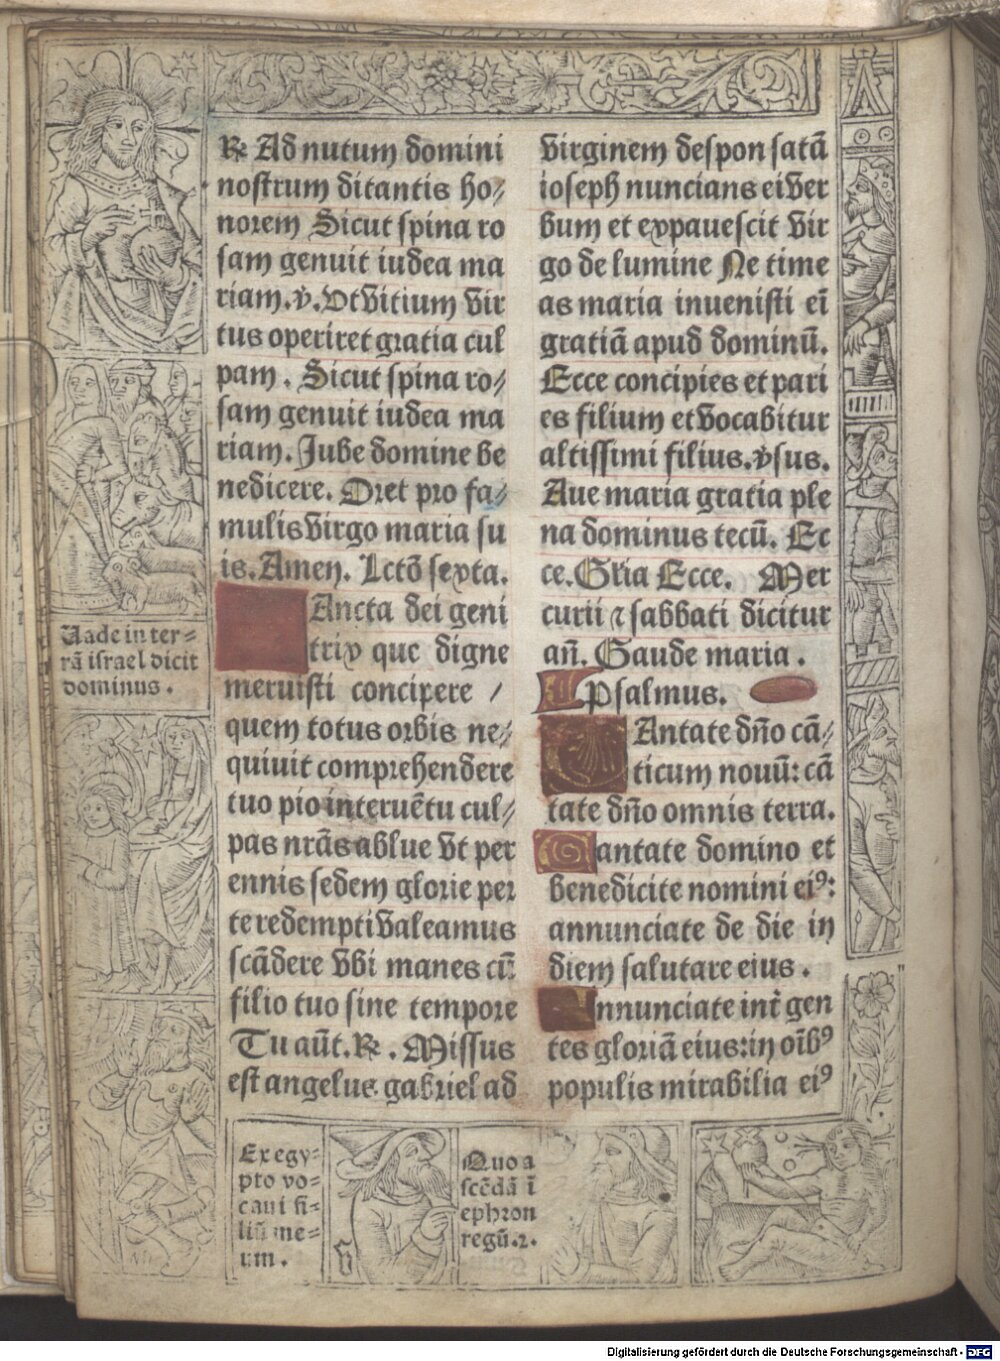 ℟ Ad nutum domini
nostrum ditantis ho⸗
norem Sicut spina ro
sam genuit iudea ma
riam.v̇. Vt vitium vir
tus operiret gratia cul
pam. Sicut spina ro⸗
sam genuit iudea ma
riam. Jube domine be
nedicere. Oret pro fa⸗
mulis virgo maria su
is. Amen. Lctō sexta.
Ancta dei geni
trix que digne
meruisti concipere /
quem totus orbis ne⸗
quiuit comprehendere
tuo pio interuētu cul⸗
pas nrās ablue vt per
ennis sedem glorie per
te redempti valeamus
scādere vbi manes cū
filio tuo sine tempore
Tu aūt. ℟. Missus
est angelus gabriel ad
virginem desponsatā
ioseph nuncians ei ver
bum et expauescit vir
go de lumine Ne time
as maria inuenisti ei
gratiā apud dominū.
Ecce concipies et pari
es filium et vocabitur
altissimi filius. v̇sus.
Aue maria gratia ple
na dominus tecū. Ec
ce. Glīa Ecce. Mer
curii ⁊ sabbati dicitur
an̄. Gaude maria.
Psalmus.
Cantate dn̄o cā⸗
ticum nouū: cā
tate dn̄o omnis terra.
Cantate domino et
benedicite nomini eiꝰ:
annunciate de die in
diem salutare eius.
Annunciate int̄ gen
tes gloriā eius: in oībꝰ
populis mirabilia eiꝰ
Uade in ter⸗
rā israel dicit
dominus.
Ex egy⸗
pto vo⸗
caui fi⸗
liū me⸗
um.
Quo a
scēdā ī
ephron
regū.2.
Digitalisierung gefördert durch die Deutsche Forschungsgemeinschaft - DFG